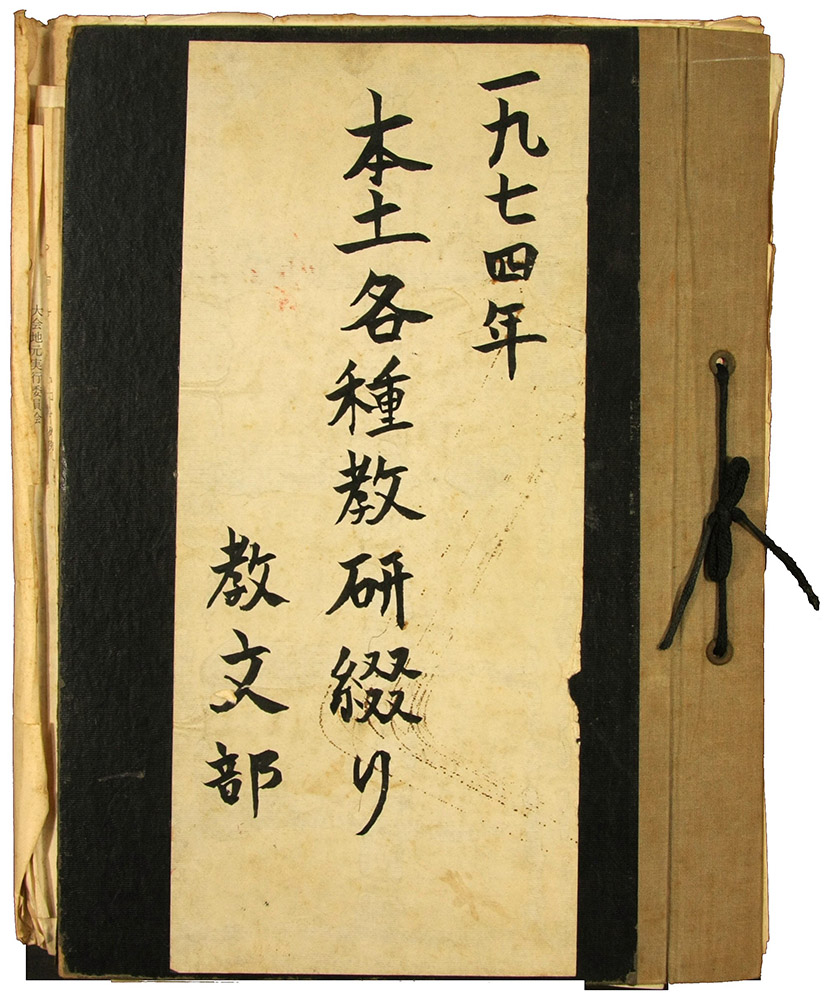 一九七四年
本土各種教研綴り
教文部
大会地元実行委員会